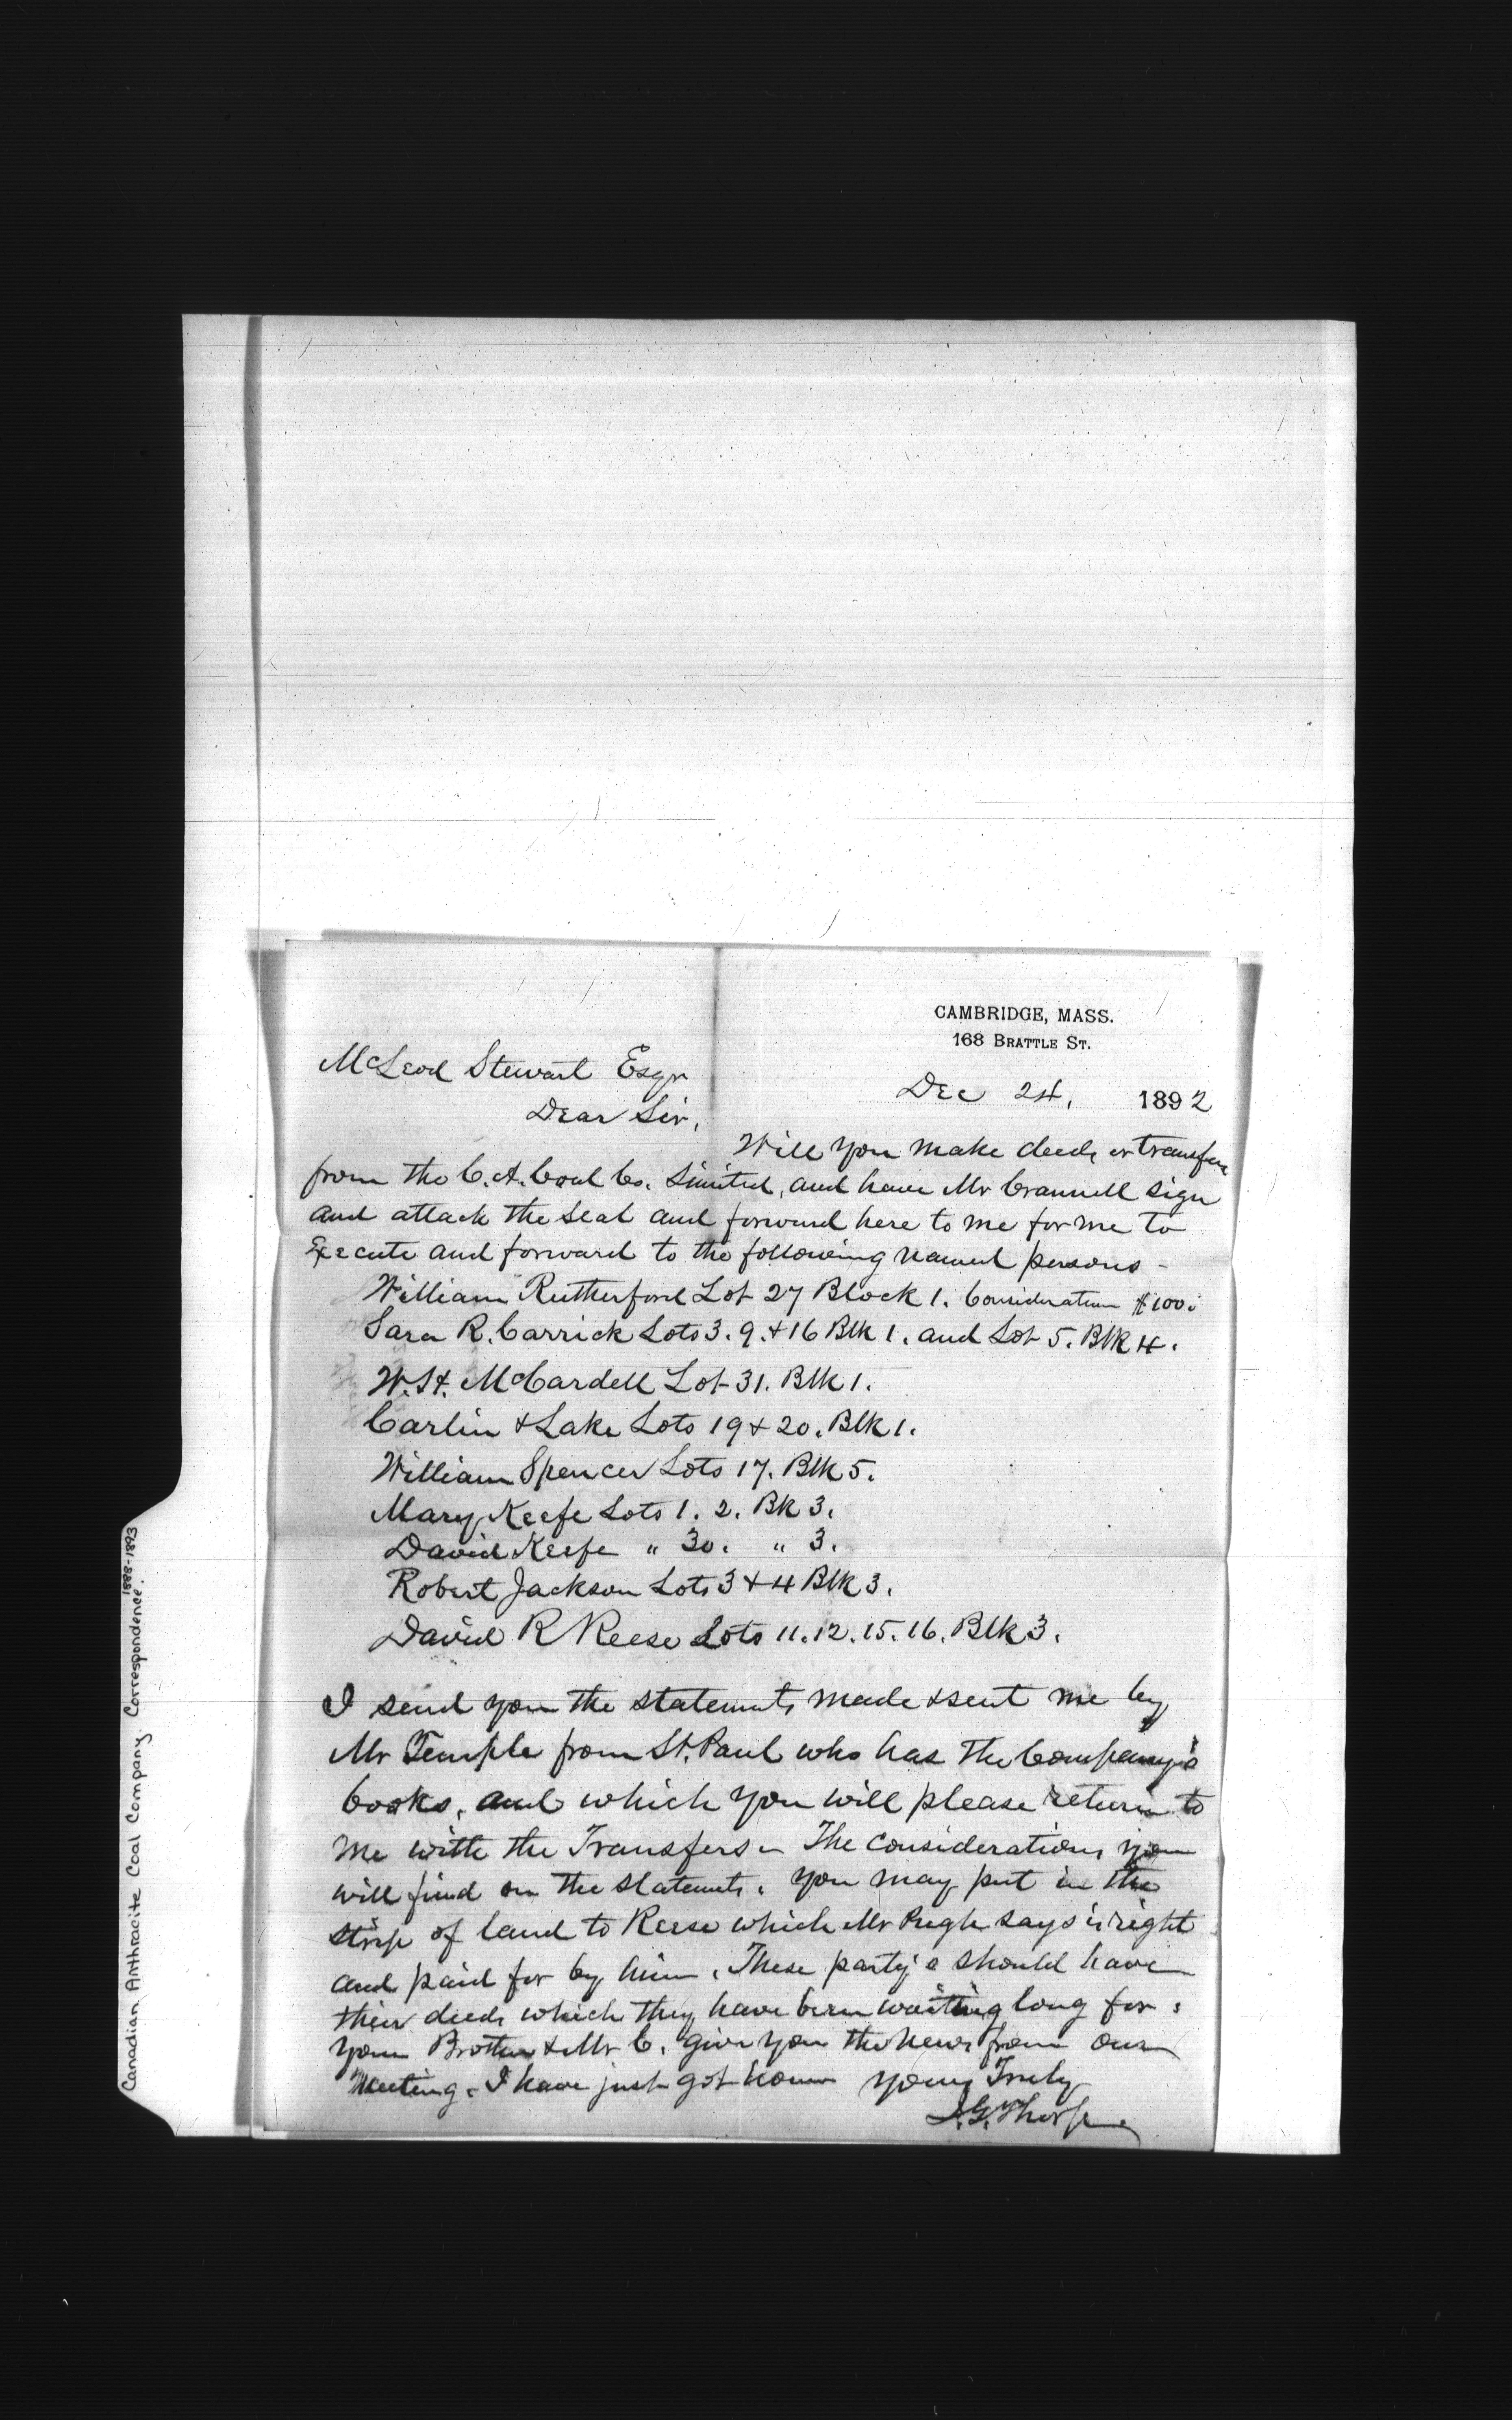 CAMBRIDGE, MASS.
168 BRATTLE ST.
Dec 24, 1892
McLeod Stewart Esqr
Dear Sir,
Will you make deeds or transfers
from the C.A. Coal Co. Limited, and have Mr Crannell sign
and attach the seal and forward here to me for me to
Execute and forward to the following named persons -
William Rutherford Lot 27 Block 1. Consideration $100.
Sara R. Carrick Lots 3. 9. & 16 Blk 1. and Lot 5. Blk 4.
W.H. McCardell Lot 31. Blk 1.
Carlin & Lake Lots 19 & 20. Blk 1.
William Spencer Lots 17. Blk 5.
Mary Keefe Lots 1. 2. Bk 3.
David Keefe " 30. " 3.
Robert Jackson Lots 3 & 4 Blk 3.
David R Reese Lots 11. 12. 15. 16. Blk 3.
I send you the statements made & sent me by
Mr Temple from St. Paul who has the Company's
books, and which you will please return to
me with the Transfers - The considerations you
will find on the statements. You may put in the
strip of land to Reese which Mr Pugh says is right
and paid for by him. These party's should have
their deeds which they have been waiting long for.
Your Brother & Mr C. give you the news from our
Meeting. I have just got home Yours Truly
J.G. Thorp
Canadian Anthracite Coal Company. Correspondence. 1888-1893